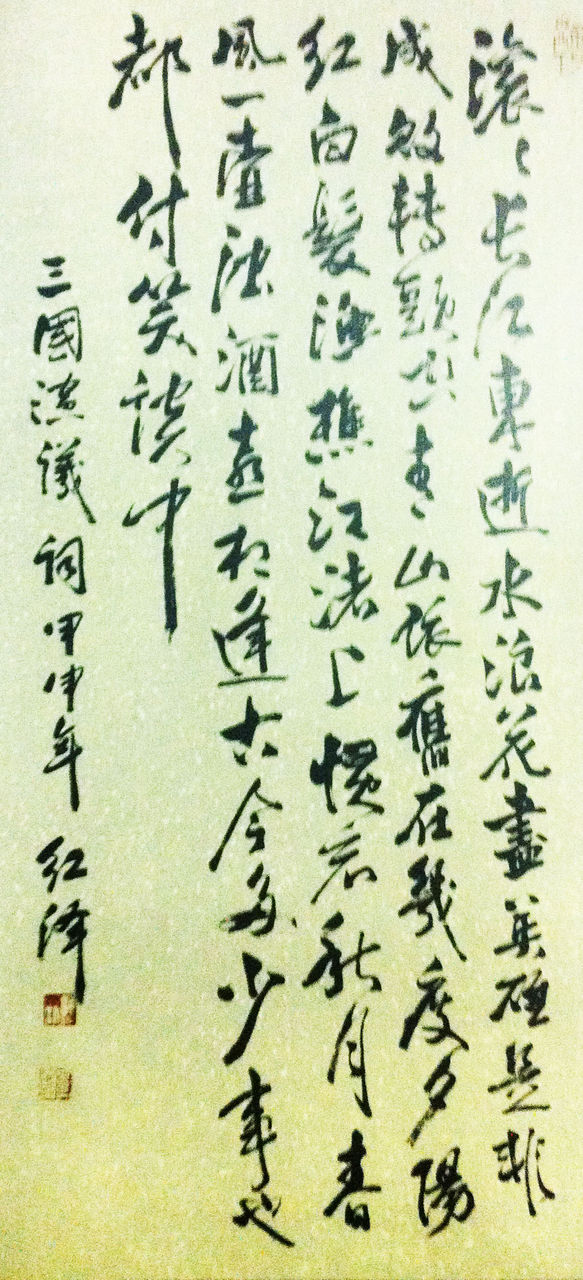 滾〻長江東逝水浪花盡英雄是非
成敗轉頭空青〻山依舊在幾度夕陽
紅白髮漁樵江渚上慣看秋月春
風一壺濁酒喜相逢古今多少事
都付笑談中
三國演議詞甲申年 紅澤